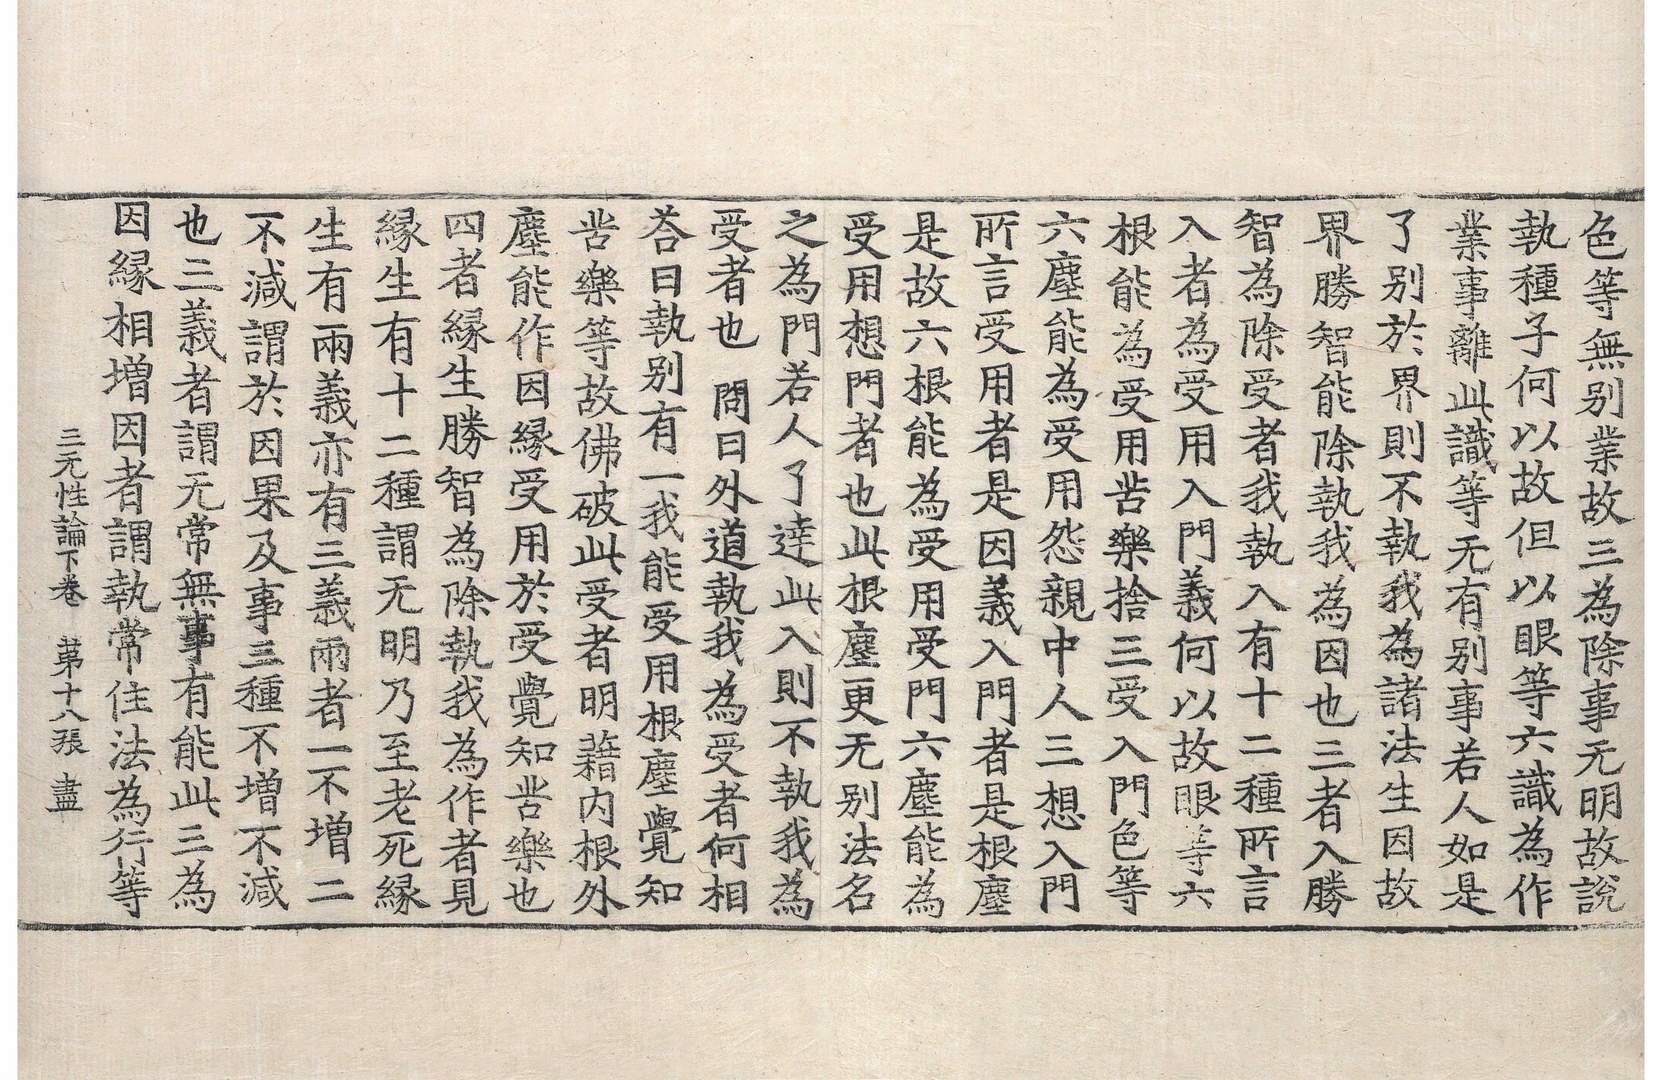 色等無別業故三為除事无明故說
執種子何以故但以眼等六識為作
業事離此識等无有別事若人如是
了別於界則不執我為諸法生因故
界勝智能除執我為因也三者入勝
智為除受者我執入有十二種所言
入者為受用入門義何以故眼等六
根能為受用苦樂捨三受入門色等
六塵能為受用怨親中人三想入門
所言受用者是因義入門者是根塵
是故六根能為受用受門六塵能為
受用想門者也此根塵更无別法名
之為門若人了達此入則不執我為
受者也 問曰外道執我為受者何相
荅曰執別有一我能受用根塵覺知
苦樂等故佛破此受者明藉内根外
塵能作因緣受用於受覺知苦樂也
四者緣生勝智為除執我為作者見
緣生有十二種謂无明乃至老死緣
生有兩義亦有三義兩者一不增二
不減謂於因果及事三種不增不減
也三義者謂无常無事有能此三為
因緣相增因者謂執常住法為行等
三无性論下卷 第十八張 盡